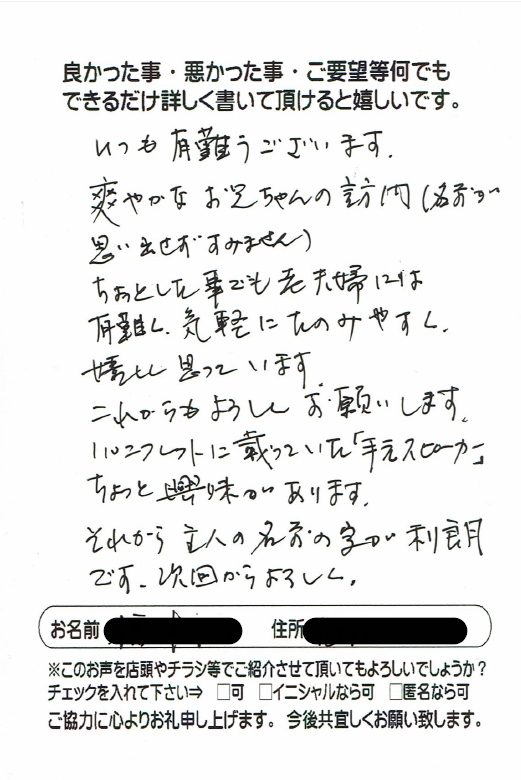 良かった事・悪かった事・ご要望等何でも
できるだけ詳しく書いて頂けると嬉しいです。
いつも有難うございます。
爽やかなお兄ちゃんの訪問(名前が
思い出せずすみません)
ちょっとした事でも老夫婦には
有難く、気軽にたのみやすく、
嬉しく思っています
これからもよろしくお願いします。
パンフレットに載っていた「手元スピーカー」
ちょっと興味があります。
それから主人の名前の字が利朗
です。次回からよろしく。
お名前
住所
※このお声を店頭やチラシ等でご紹介させて頂いてもよろしいでしょうか?
チェックを入れて下さい⇒ □可 □イニシャルなら可 □匿名なら可
ご協力に心よりお礼申し上げます。今後共宜しくお願い致します。